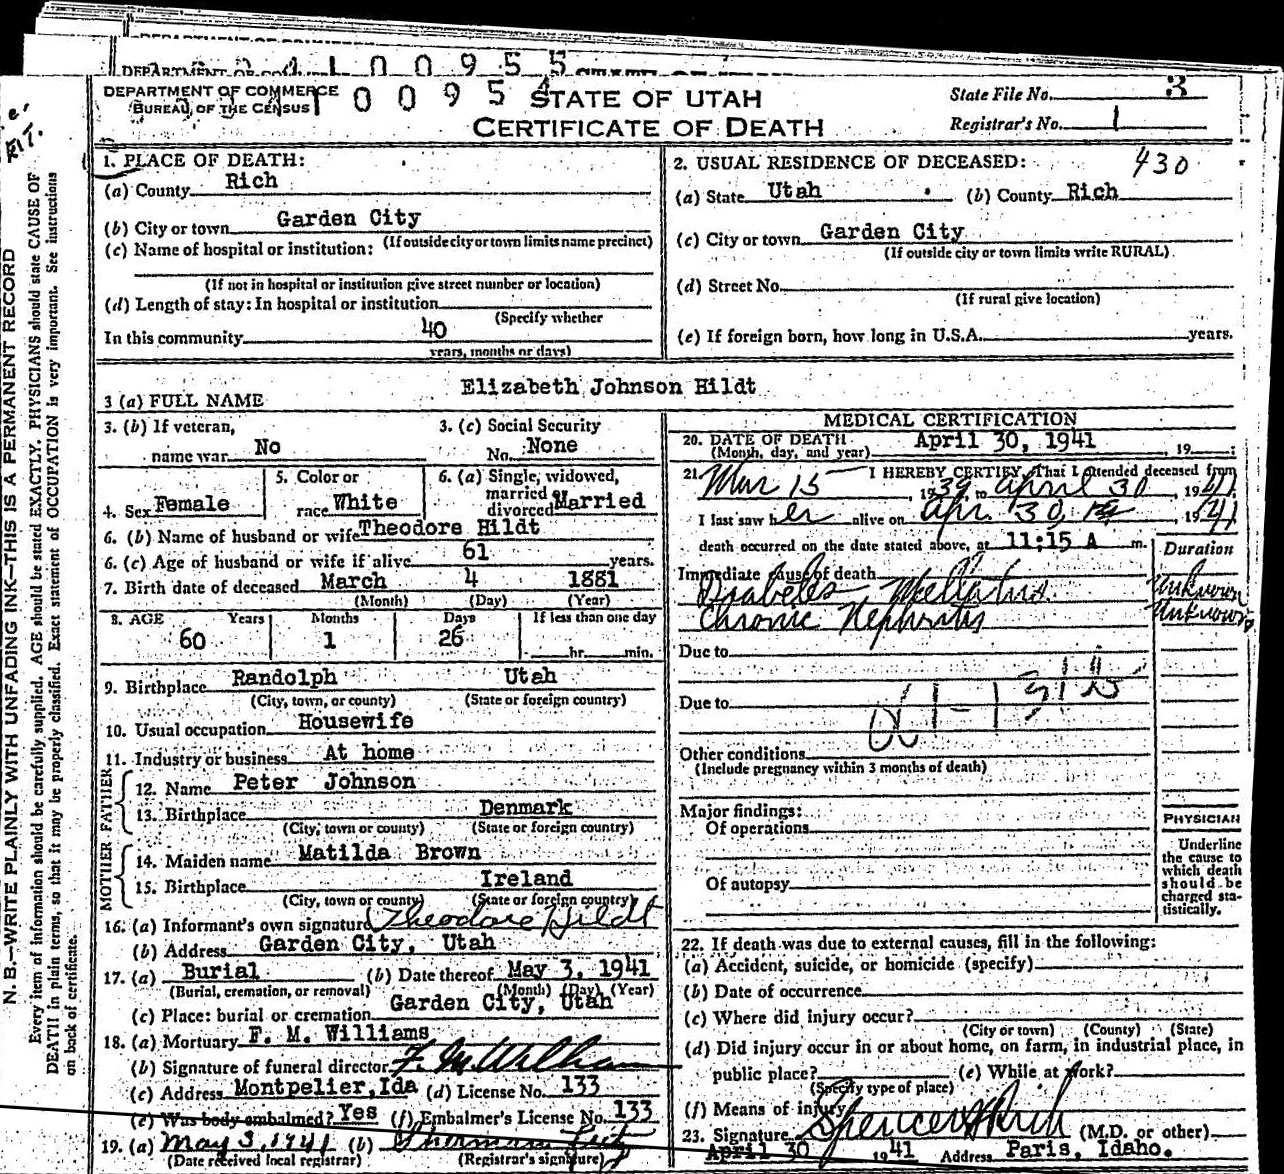 DEPARTMENT OF COMMERCE
1 0 0 9 5 5
DEPARTMENT OF COMMERCE
BUREAU OF THE CENSUS
1 0 0 9 5 4
STATE OF UTAH
CERTIFICATE OF DEATH
State File No. 3
Registrar's No. 1
N. B.—WRITE PLAINLY WITH UNFADING INK—THIS IS A PERMANENT RECORD
Every item of information should be carefully supplied. AGE should be stated EXACTLY. PHYSICIANS should state CAUSE OF
DEATH in plain terms, so that it may be properly classified. Exact statement of OCCUPATION is very important. See instructions
on back of certificate.
1. PLACE OF DEATH:
(a) County Rich
(b) City or town Garden City
(If outside city or town limits name precinct)
(c) Name of hospital or institution:
(If not in hospital or institution give street number or location)
(d) Length of stay: In hospital or institution
(Specify whether
In this community 40
years, months or days)
2. USUAL RESIDENCE OF DECEASED: 430
(a) State Utah (b) County Rich
(c) City or town Garden City
(If outside city or town limits write RURAL)
(d) Street No.
(If rural give location)
(e) If foreign born, how long in U.S.A. years.
3 (a) FULL NAME Elizabeth Johnson Hildt
3. (b) If veteran,
name war No
3. (c) Social Security
No. None
4. Sex Female
5. Color or
race White
6. (a) Single, widowed,
married or
divorced Married
6. (b) Name of husband or wife Theodore Hildt
6. (c) Age of husband or wife if alive 61 years.
7. Birth date of deceased March 4 1881
(Month) (Day) (Year)
8. AGE Years Months Days If less than one day
60 1 26 hr. min.
9. Birthplace Randolph Utah
(City, town, or county) (State or foreign country)
10. Usual occupation Housewife
11. Industry or business At home
FATHER
12. Name Peter Johnson
13. Birthplace Denmark
(City, town or county) (State or foreign country)
MOTHER
14. Maiden name Matilda Brown
15. Birthplace Ireland
(City, town or county) (State or foreign country)
16. (a) Informant's own signature Theodore Hildt
(b) Address Garden City, Utah
17. (a) Burial (b) Date thereof May 3, 1941
(Burial, cremation, or removal) (Month) (Day) (Year)
(c) Place: burial or cremation Garden City, Utah
18. (a) Mortuary F. M. Williams
(b) Signature of funeral director F. M. Williams
(c) Address Montpelier, Ida (d) License No. 133
(e) Was body embalmed? Yes (f) Embalmer's License No. 133
19. (a) May 3, 1941 (b)
(Date received local registrar) (Registrar's signature)
MEDICAL CERTIFICATION
20. DATE OF DEATH April 30, 1941
(Month, day, and year) , 19 :
21. I HEREBY CERTIFY, That I attended deceased from
Mar 15, 1939 to April 30, 1941
I last saw her alive on Apr. 30, 1941
death occurred on the date stated above, at 11:15 A m.
Duration
Immediate cause of death
Diabetes Mellatus Unknown
Chronic Nephritis Unknown
Due to
Due to
Other conditions
(Include pregnancy within 3 months of death)
Major findings:
Of operations
Of autopsy
PHYSICIAN
Underline
the cause to
which death
should be
charged sta-
tistically.
22. If death was due to external causes, fill in the following:
(a) Accident, suicide, or homicide (specify)
(b) Date of occurrence
(c) Where did injury occur?
(City or town) (County) (State)
(d) Did injury occur in or about home, on farm, in industrial place, in
public place? (e) While at work?
(Specify type of place)
(f) Means of injury
23. Signature Spencer H Rich (M.D. or other)
April 30 1941 Address Paris, Idaho.